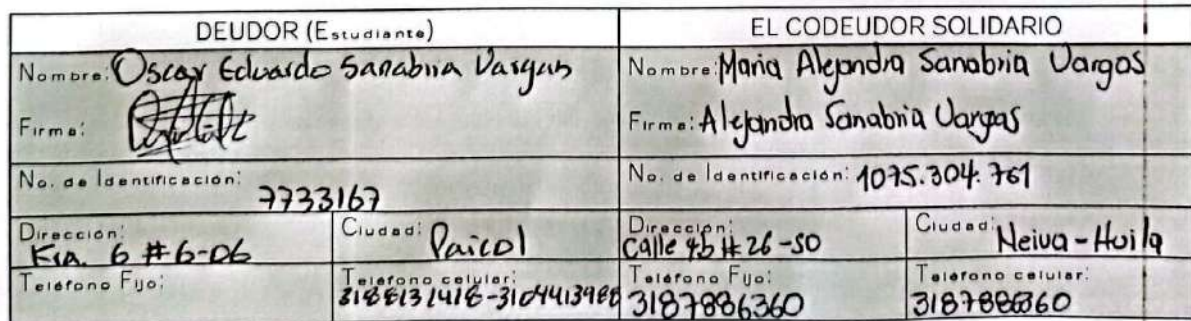 DEUDOR (Estudiante)
EL CODEUDOR SOLIDARIO
Nombre: Oscar Eduardo Sanabria Vargas
Nombre: Maria Alejandra Sanabria Vargas
Firma:
Firma: Alejandra Sanabria Vargas
No. de Identificación: 7733167
No. de Identificación: 1075.304.761
Dirección: Kra. 6 #6-06
Ciudad: Paicol
Dirección: Calle 4b #26-50
Ciudad: Neiva-Huila
Teléfono Fijo:
Teléfono celular: 3188131418-3104413988
Teléfono Fijo: 3187886360
Teléfono celular: 3187886360